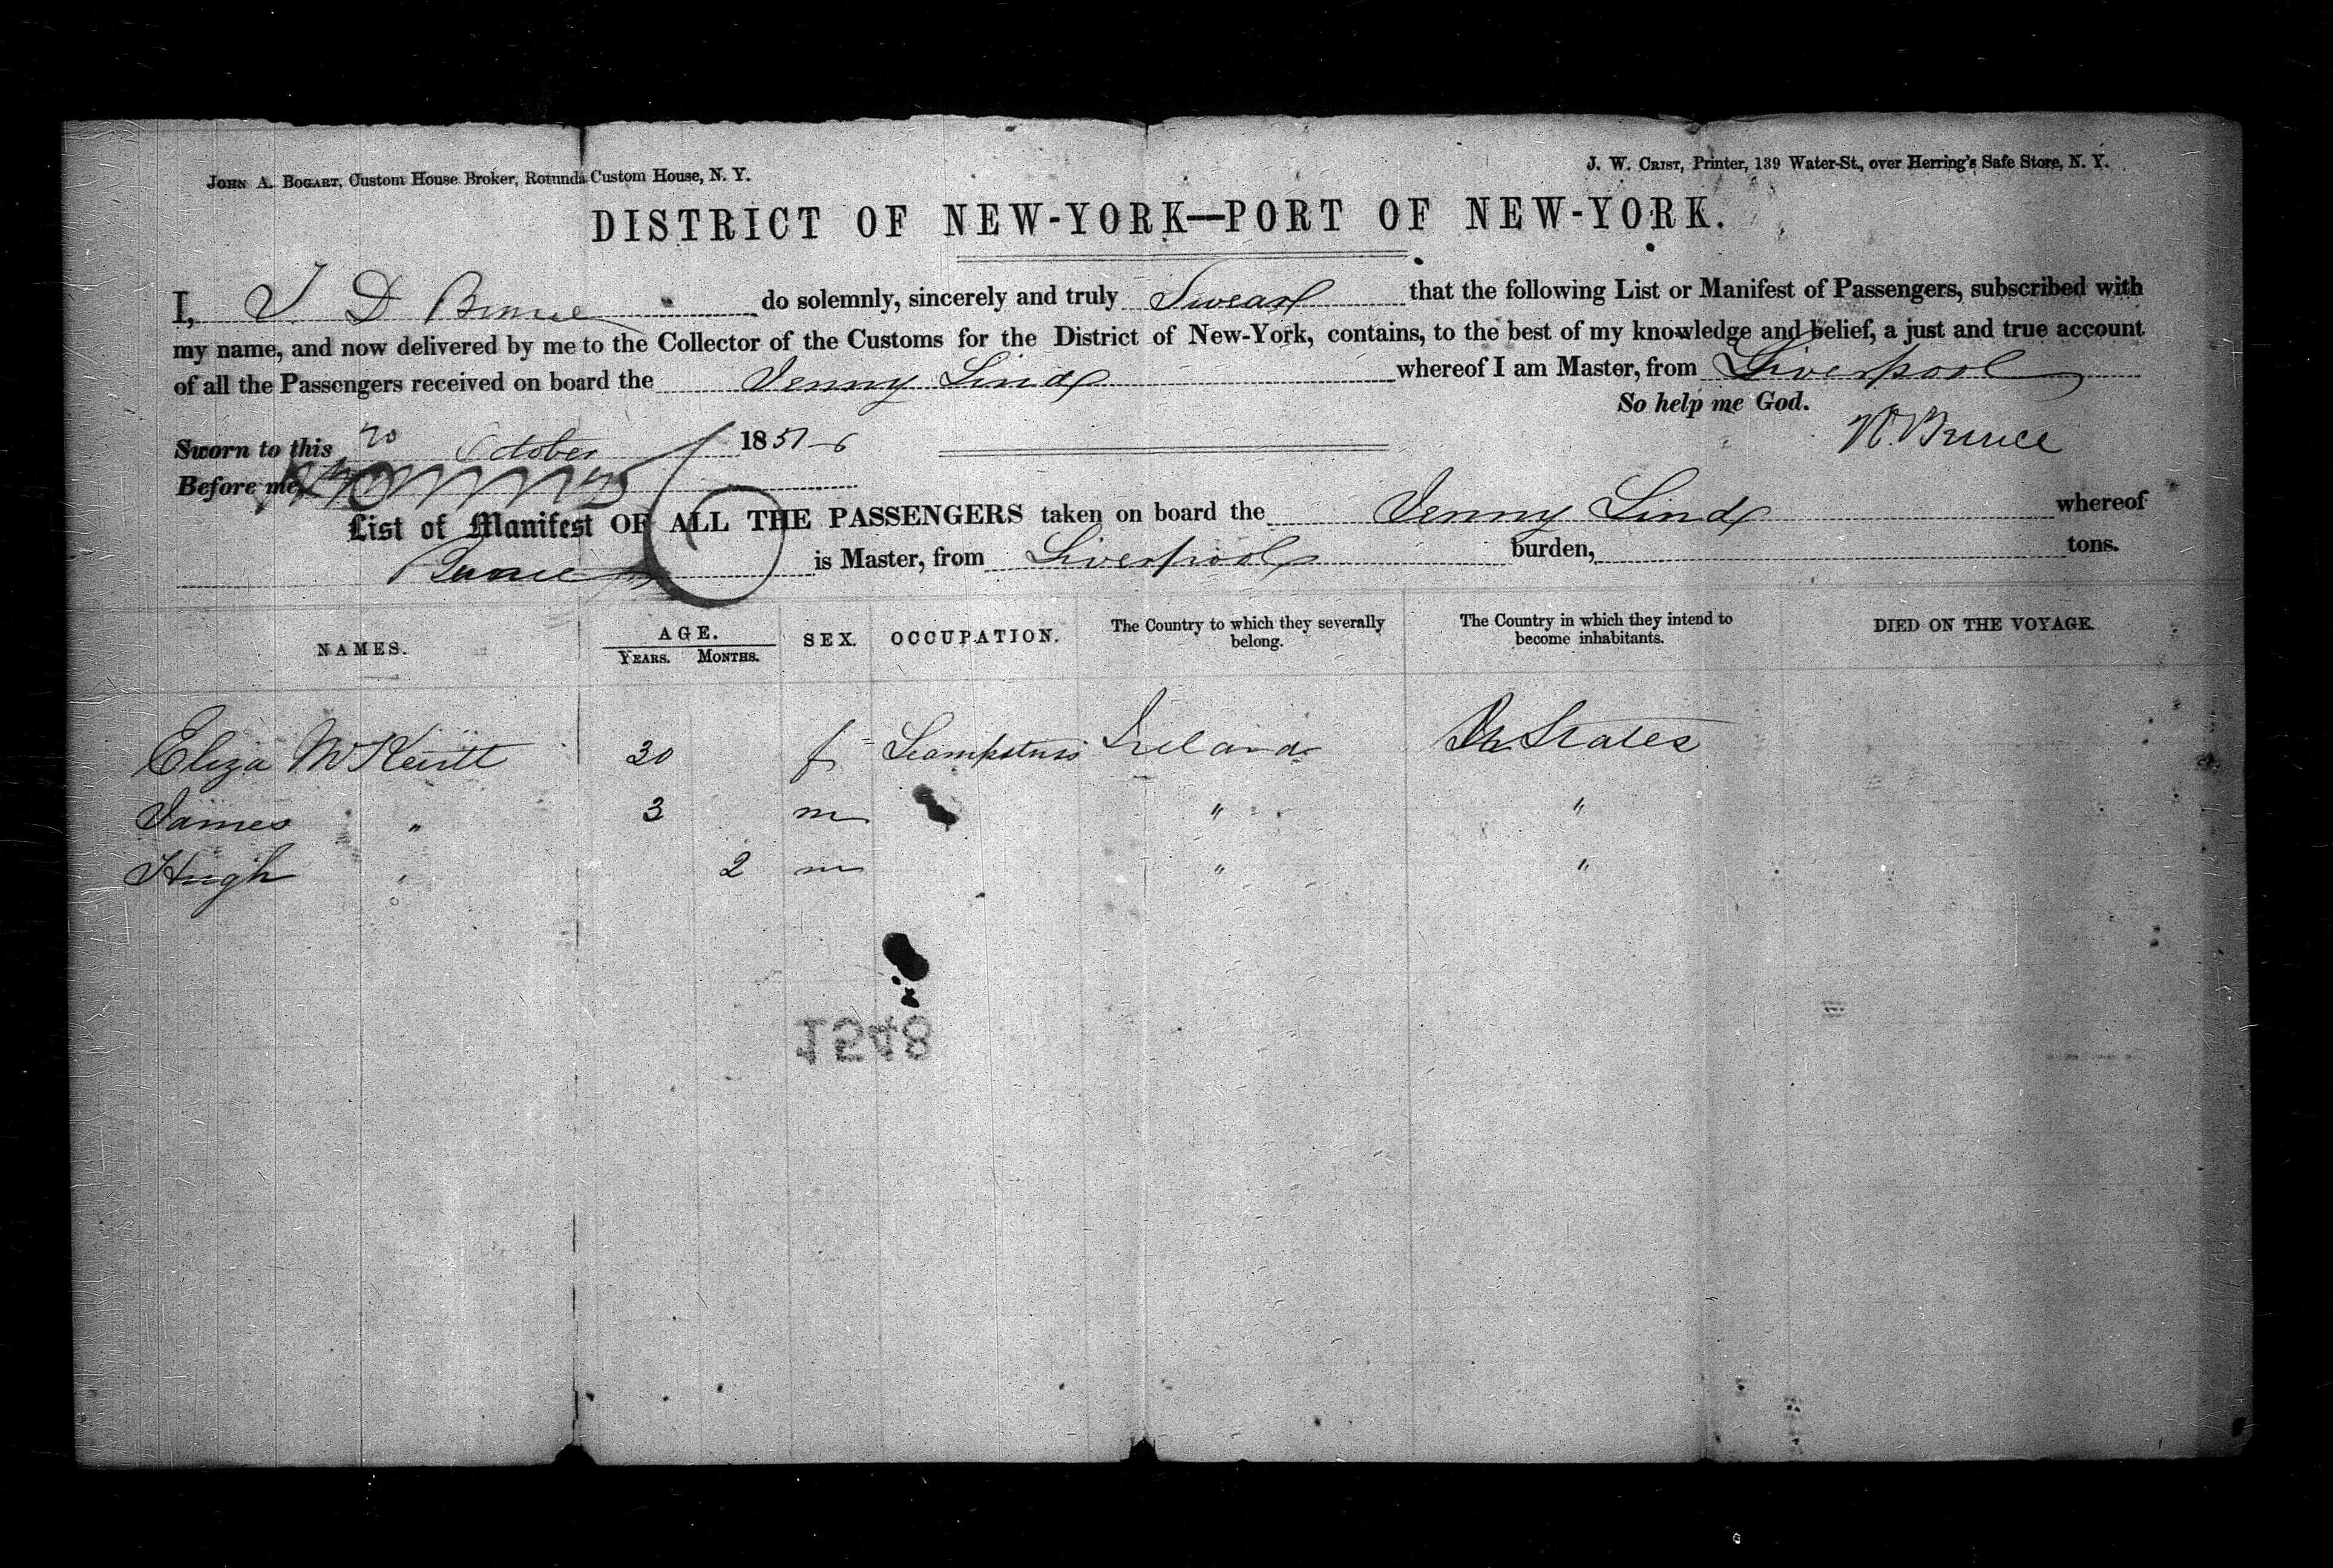 JOHN A. BOGART, Custom House Broker, Rotunda Custom House, N. Y.
J. W. CRIST, Printer, 139 Water-St., over Herring's Safe Store, N. Y.
DISTRICT OF NEW-YORK—PORT OF NEW-YORK.
I, J D Bunce do solemnly, sincerely and truly Swear that the following List or Manifest of Passengers, subscribed with
my name, and now delivered by me to the Collector of the Customs for the District of New-York, contains, to the best of my knowledge and belief, a just and true account
of all the Passengers received on board the Jenny Lind whereof I am Master, from Liverpool
So help me God.
Sworn to this 20 October 1851-6
Bunce
Before me,
List of Manifest OF ALL THE PASSENGERS taken on board the Jenny Lind whereof
Bunce is Master, from Liverpool burden, tons.
NAMES. AGE. SEX. OCCUPATION. The Country to which they severally The Country in which they intend to DIED ON THE VOYAGE.
YEARS. MONTHS. belong. become inhabitants.
Eliza 30 f Ireland States
James " 3 m " "
Hugh " 2 m " "
1548